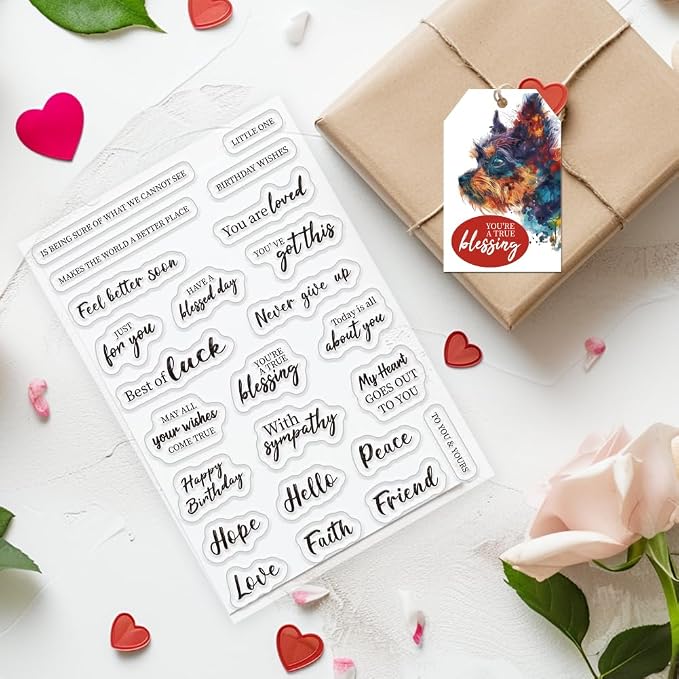 LITTLE ONE
IS BEING SURE OF WHAT WE CANNOT SEE
BIRTHDAY WISHES
MAKES THE WORLD A BETTER PLACE
You are loved
YOU'VE
got this
Feel better soon
HAVE A
blessed day
Never give up
JUST
for you
Today is all
about you
Best of luck
YOU'RE
A TRUE
blessing
My Heart
GOES OUT
TO YOU
MAY ALL
your wishes
COME TRUE
With
sympathy
TO YOU & YOURS
Happy
Birthday
Hello
Peace
Hope
Faith
Friend
Love
YOU'RE
A TRUE
blessing